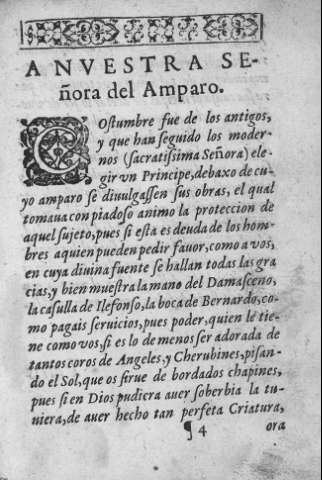 A NVESTRA SE-
ñora del Amparo.
COſtumbre fue de los antigos,
y que han ſeguido los moder-
nos (ſacratiſsima Señora) ele-
gir vn Principe, debaxo de cu-
yo amparo ſe diuulgaſſen sus obras, el qual
tomaua con piadoſo animo la proteccion de
aquel ſujeto, pues ſi eſta es deuda de los hom-
bres a quien pueden pedir fauor, como a vos,
en cuya diuina fuente ſe hallan todas las gra
cias, y bien mueſtra la mano del Damaſceno,
la caſulla de Ilefonſo, la boca de Bernardo, co-
mo pagais ſeruicios, pues poder, quien le tie-
ne como vos, ſi es lo de menos ſer adorada de
tantos coros de Angeles, y Cherubines, piſan-
do el Sol, que os ſirue de bordados chapines,
pues ſi en Dios pudiera auer ſoberbia la tu-
uiera, de auer hecho tan perfeta Criatura,
¶ 4 ora